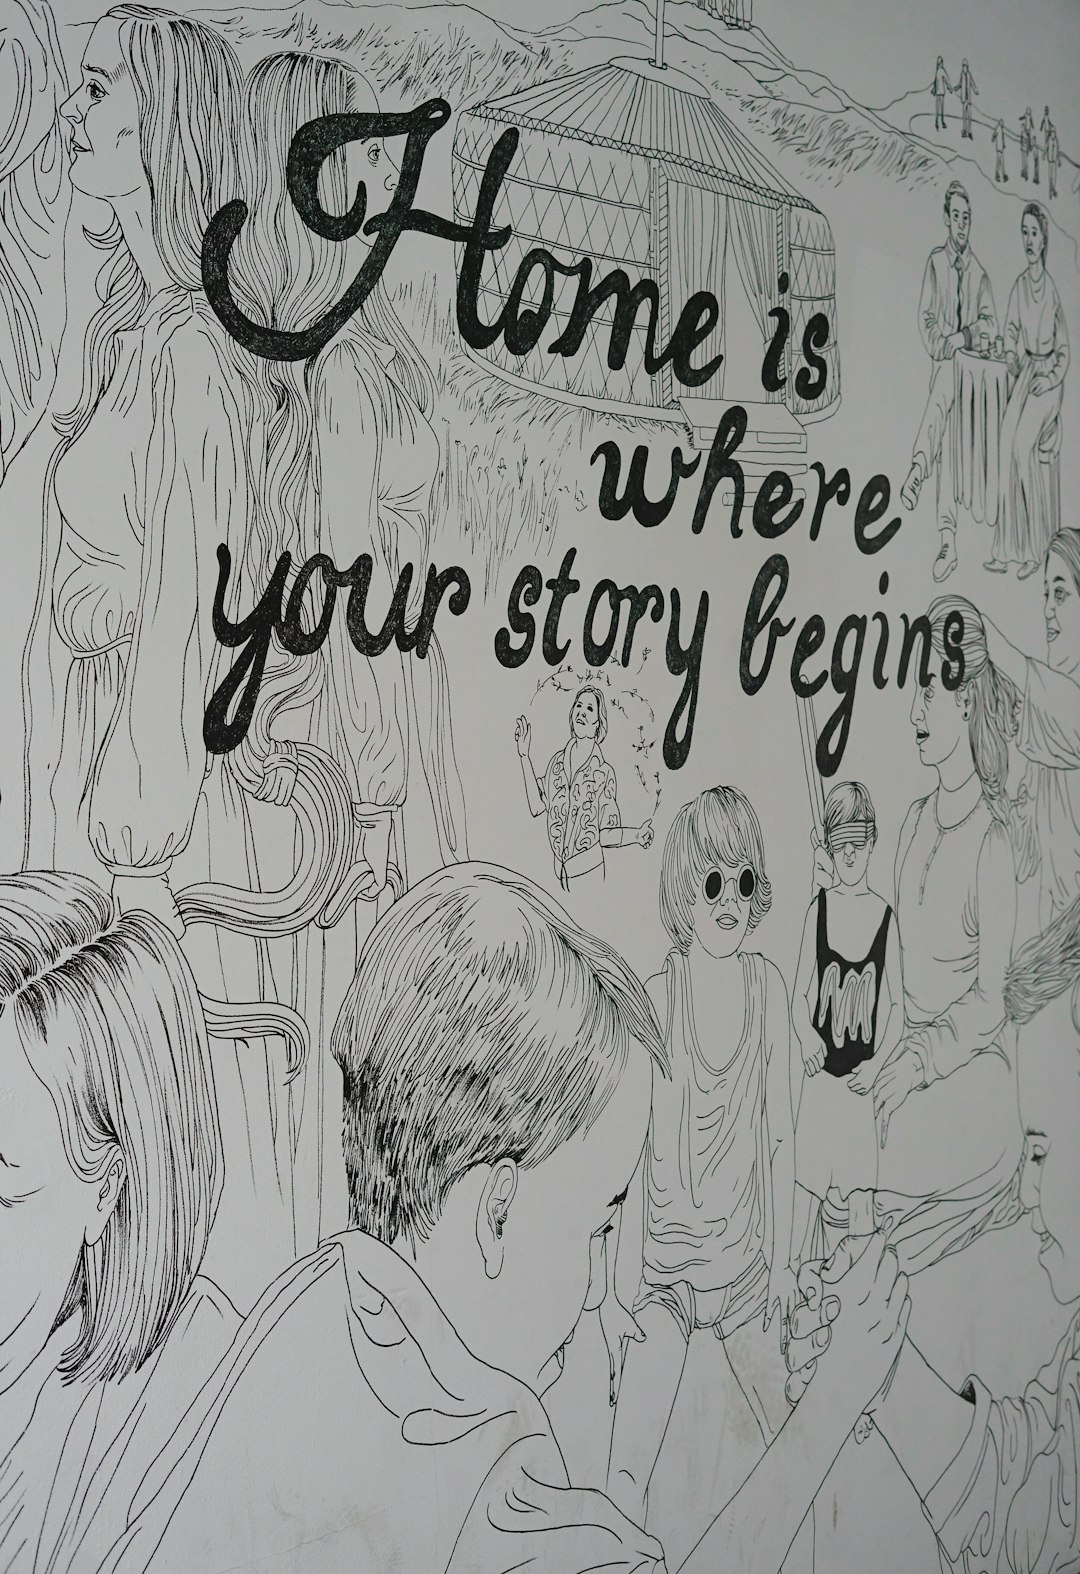 Home is
where
your story begins